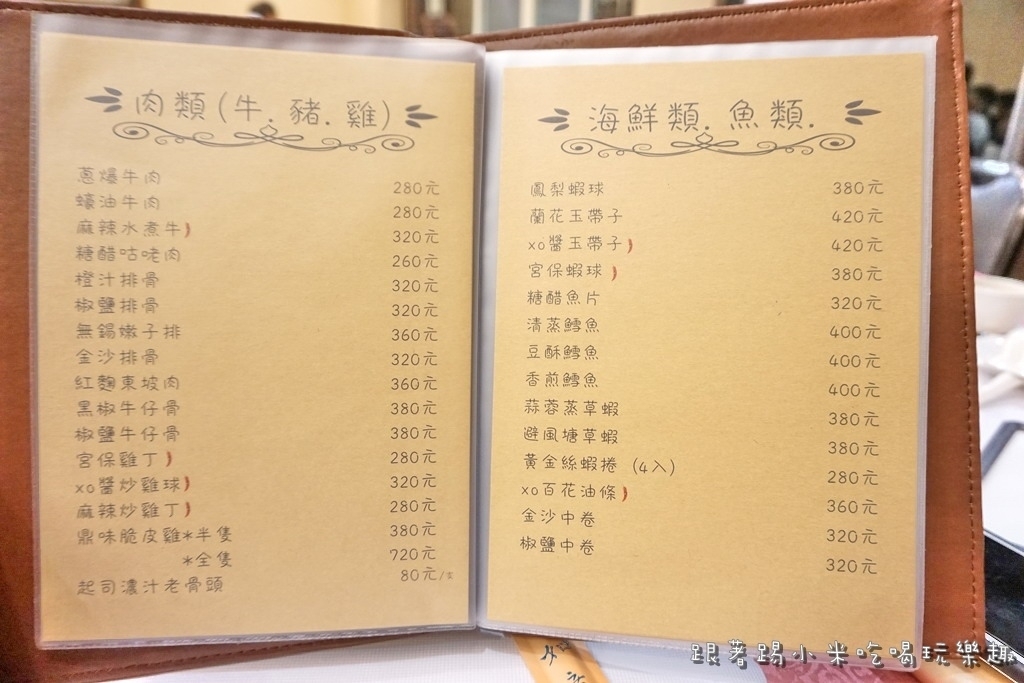 肉類(牛.豬.雞)
蔥爆牛肉 280元
蠔油牛肉 280元
麻辣水煮牛 320元
糖醋咕咾肉 260元
橙汁排骨 320元
椒鹽排骨 320元
無錫嫩子排 360元
金沙排骨 320元
紅麴東坡肉 360元
黑椒牛仔骨 380元
椒鹽牛仔骨 380元
宮保雞丁 280元
xo醬炒雞球 320元
麻辣炒雞丁 280元
鼎味脆皮雞*半隻 380元
*全隻 720元
起司濃汁老骨頭 80元/支
海鮮類.魚類.
鳳梨蝦球 380元
蘭花玉帶子 420元
xo醬玉帶子 420元
宮保蝦球 380元
糖醋魚片 320元
清蒸鱈魚 400元
豆酥鱈魚 400元
香煎鱈魚 400元
蒜蓉蒸草蝦 380元
避風塘草蝦 380元
黃金絲蝦捲 (4入) 280元
xo百花油條 360元
金沙中卷 320元
椒鹽中卷 320元
跟著踢小米吃喝玩樂趣